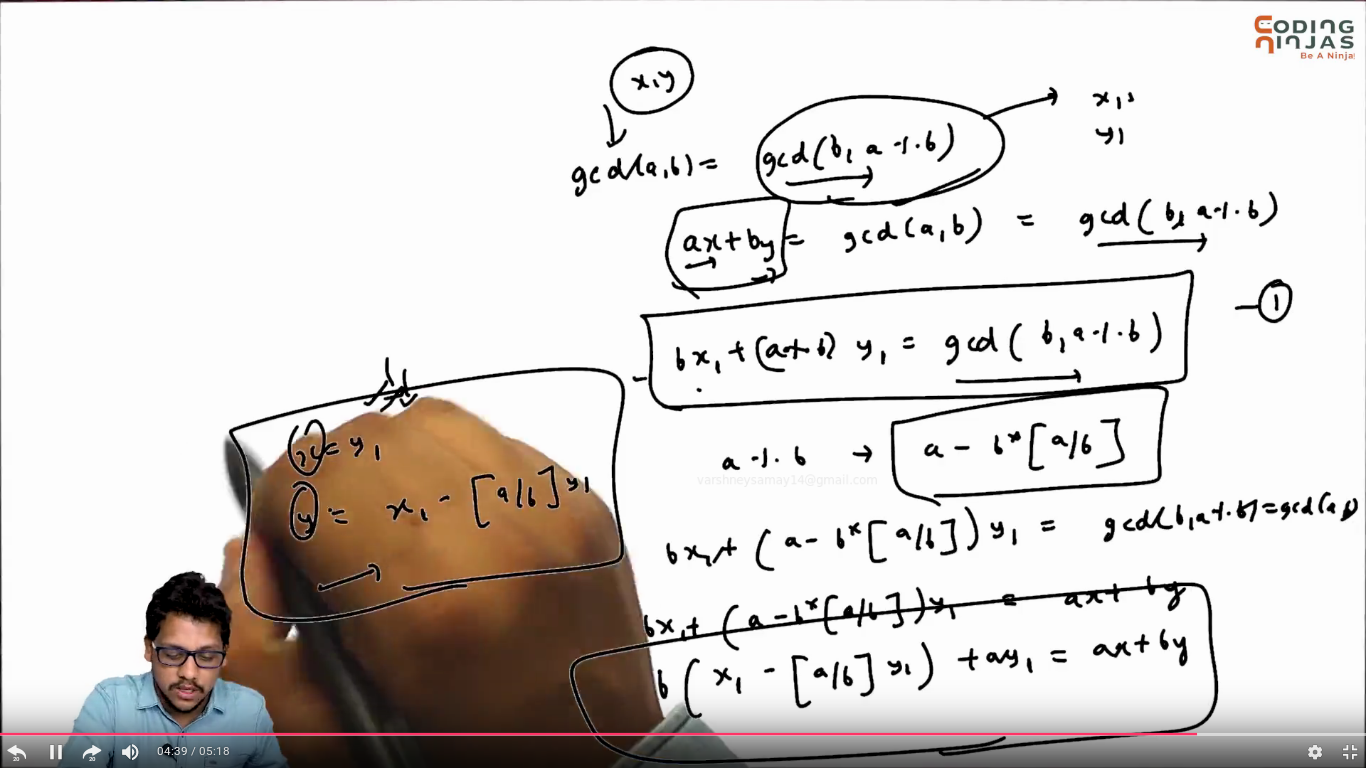 CODING
NINJAS
Be A Ninja!
x,y
gcd(a,b) = gcd(b, a % b)
x1,
y1
ax + by = gcd(a,b) = gcd(b, a % b)
bx1 + (a % b) y1 = gcd(b, a % b) — 1
a % b → a - b* [a/b]
varshneysamay14@gmail.com
bx1 + (a - b* [a/b]) y1 = gcd(b, a % b) = gcd(a,b)
bx1 + (a - b* [a/b]) y1 = ax + by
b (x1 - [a/b] y1) + ay1 = ax + by
x = y1
y = x1 - [a/b] y1
20
20
04:39 / 05:18